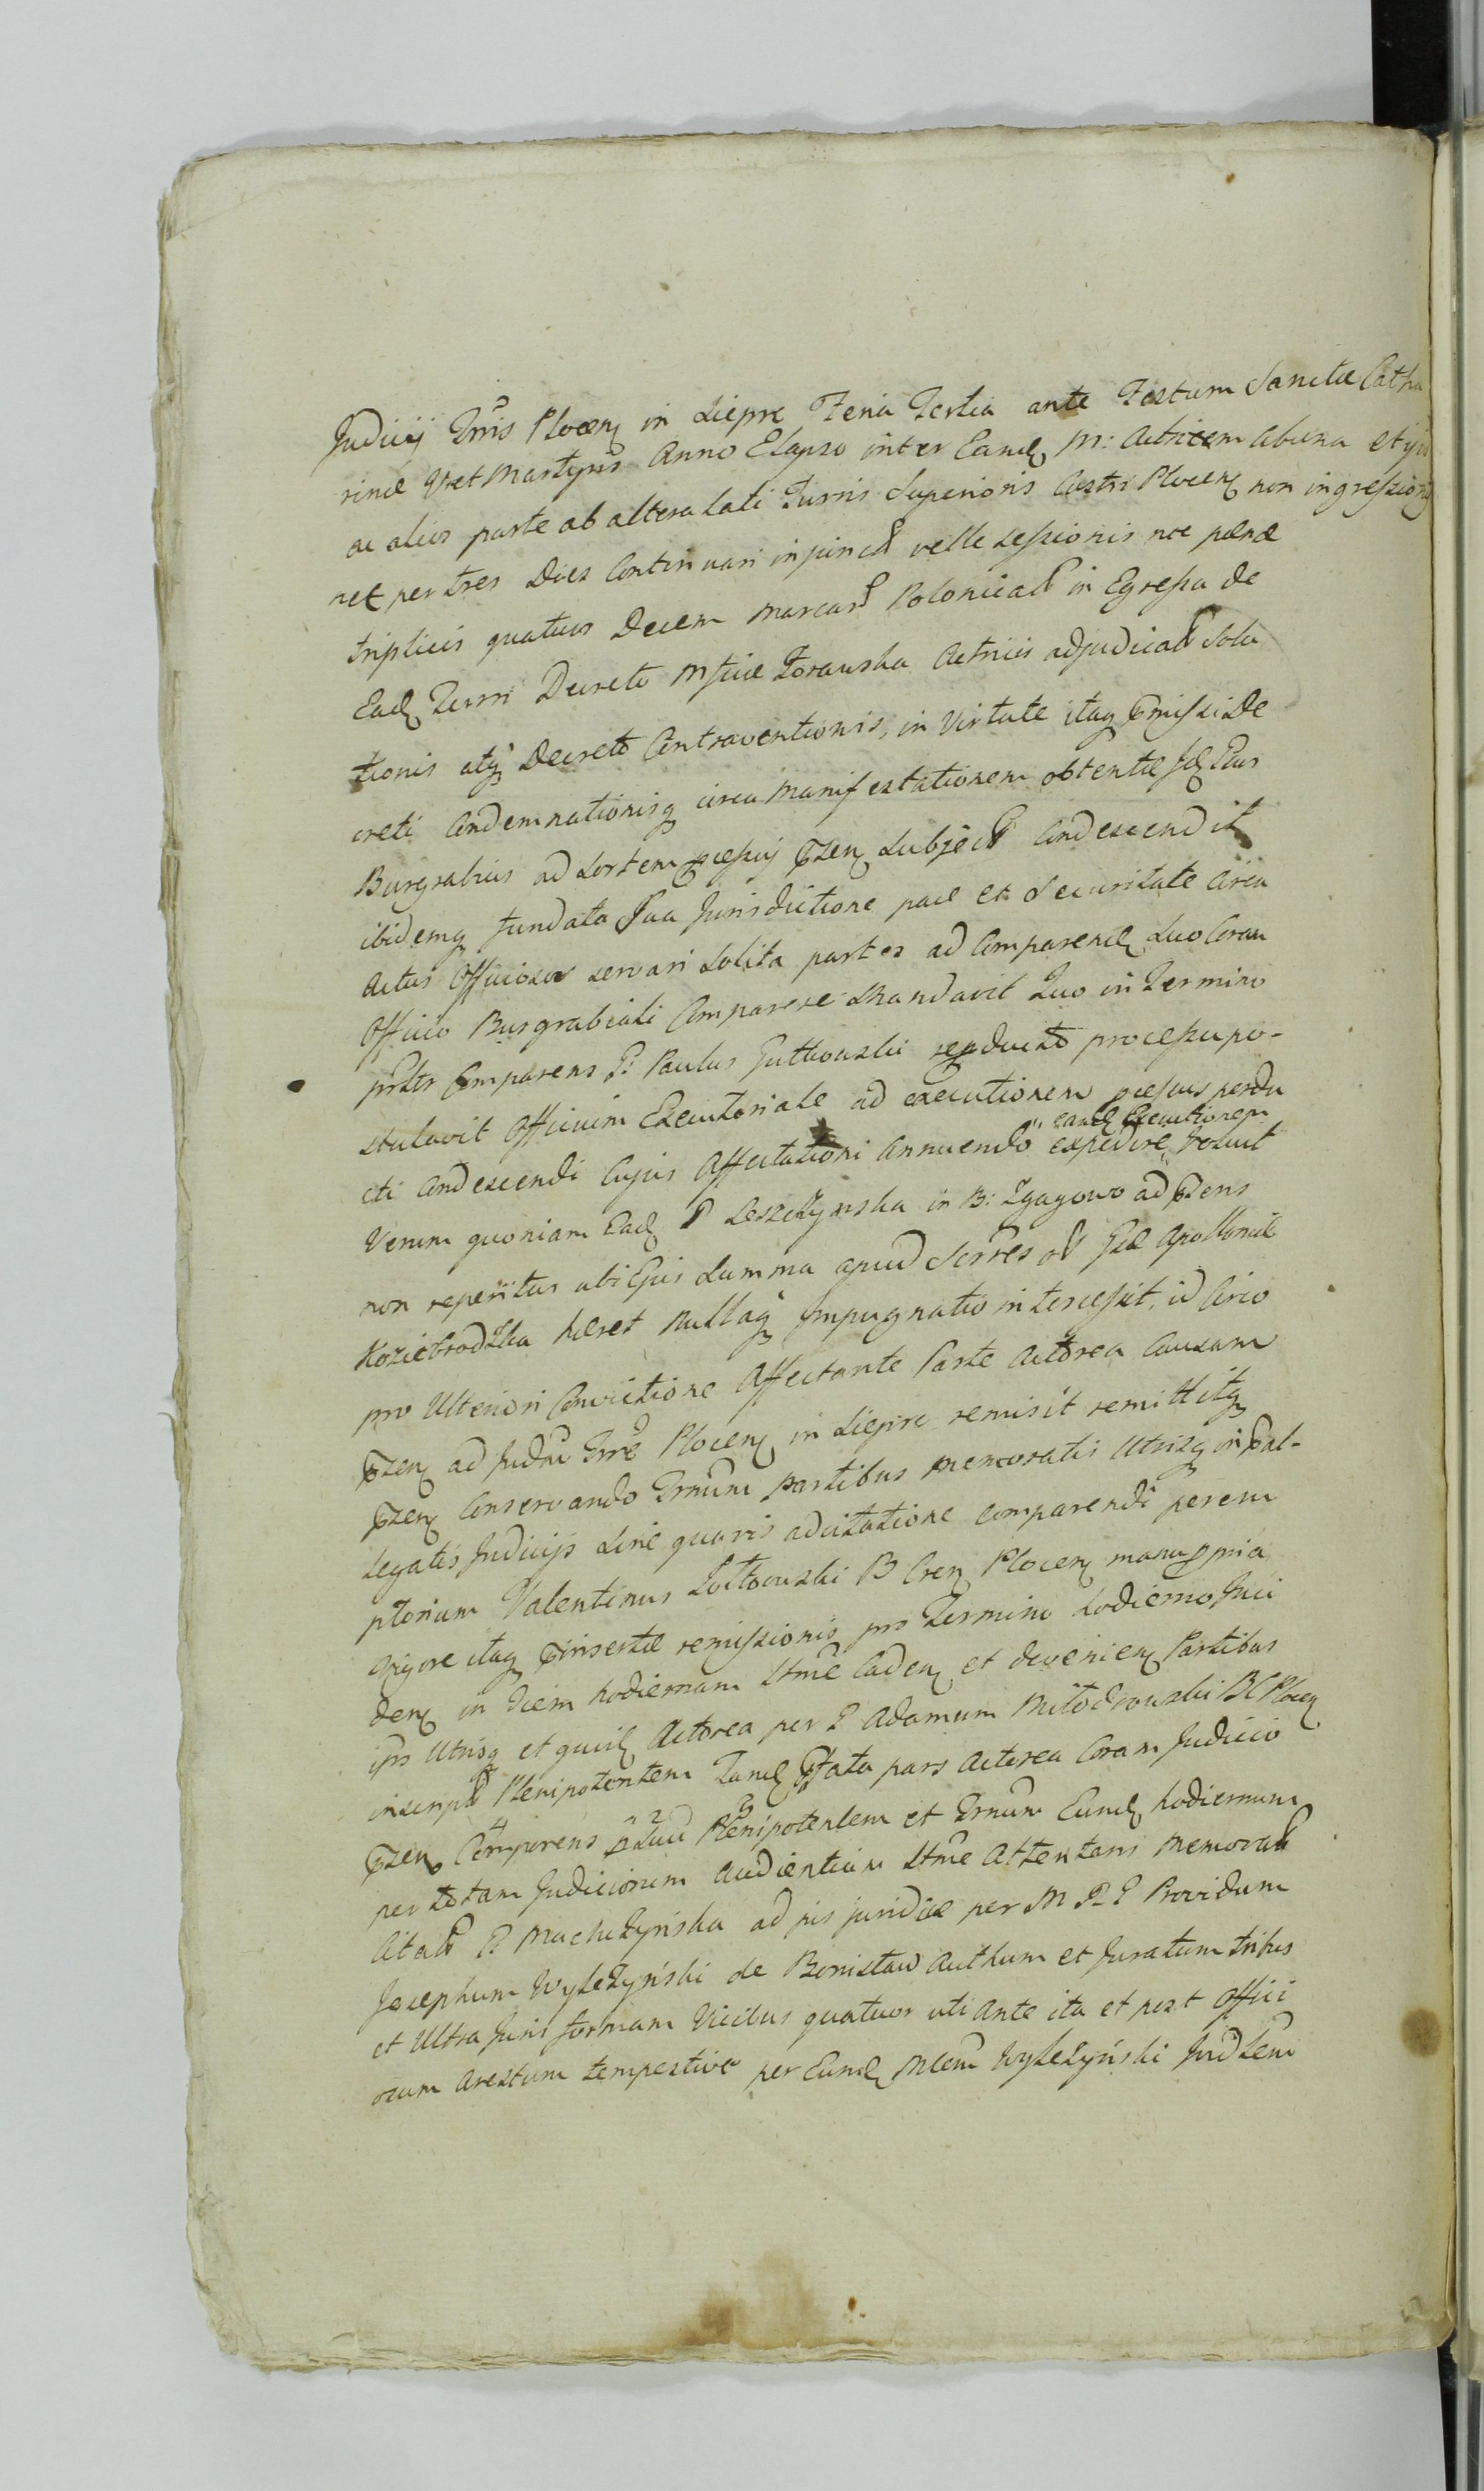 Judicij Trris Plocen in Sieprc Feria Tertia ante Festum Sanctae Catha
rinae V et Martyris Anno Elapso inter Eand M: Actricem ab una et
ac alios parte ab altera lati Turris Superioris Castri Plocen non ingressionis
nec per tres Dies Continuari injunct velle sessionis nec paenae
triplicis quatuor Decem marcar Polonical in Egressu de
Ead Turri Decreto Mficae Zorawska Actricis adjudicat Solu
tionis atq Decreto Contraventionis, in Virtute itaq pmissi De
creti Condemnationisq circa Manifestationem obtentae Idem
Burgrabius ad Sortem pcessij psen Subject Condescendit
ibidemq fundata sua Jurisdictione pace et Securitate circa
Actus Officiosos servari Solita partes ad Comparend Suo Coram
Officio Burgrabiali Comparere Mandavit Quo in Termino
prsltr Comparens P: Paulus Gutkowski reproducto processu po-
stulavit Officium Executoriale ad executionem pcessus perdu
cti Condescendi Cujus Affectationi annuendo eand Executionem expedire voluit
Verum quoniam Ead P Leszczynska in B: Zgagowo ad psens
non reperitur ubi Ejus Summa apud Sorres ol Gsae Apolloniae
Koziebrodzka haeret nullaq Impugnatio intercessit, id Circo
pro Ulteriori Convictione Affectante Parte Actorea Causam
psen ad Judm Trre Plocen in Sieprc remisit remittitq
psen Conservando Trmum partibus memoratis Utrisq in pal-
legatis Judicijs Sine quavis adcitatione comparendi perem
ptorium Valentinus Zoltowski B Cren Plocen manu ppria
Vigore itaq pinsertae remissionis pro Termino hodierno Inci
den in Diem hodiernam ltme Caden et devenien Partibus
ips Utrisq et quid Actorea per P Adamum Mlodrowski BC Plocen
inscript Plenipotentem Tand pfata pars Actorea Coram Judicio
psen Comparens p Suu Plenipotentem et Trmum Eund hodiernum
per totam Judiciorum audientiam ltme Attentans memorat
Citat P: Machczynska ad jus juridice per M P P Providum
Josephum Wyleżyński de Bonislaw Authum et Juratum tribus
et Ultra Juris formam Vicibus quatuor uti ante ita et post Offici
osum arestum tempestive per Eund Mtem Wyleżyński Judlem